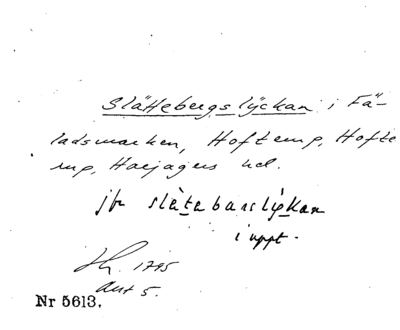 Slättebergslyckan i Fä-
ladsmarken, Hofterup, Hofte
rup, Harjagers hd.
jfr slätebarslykan
i uppt.
1795
akt 5.
Nr 5613.